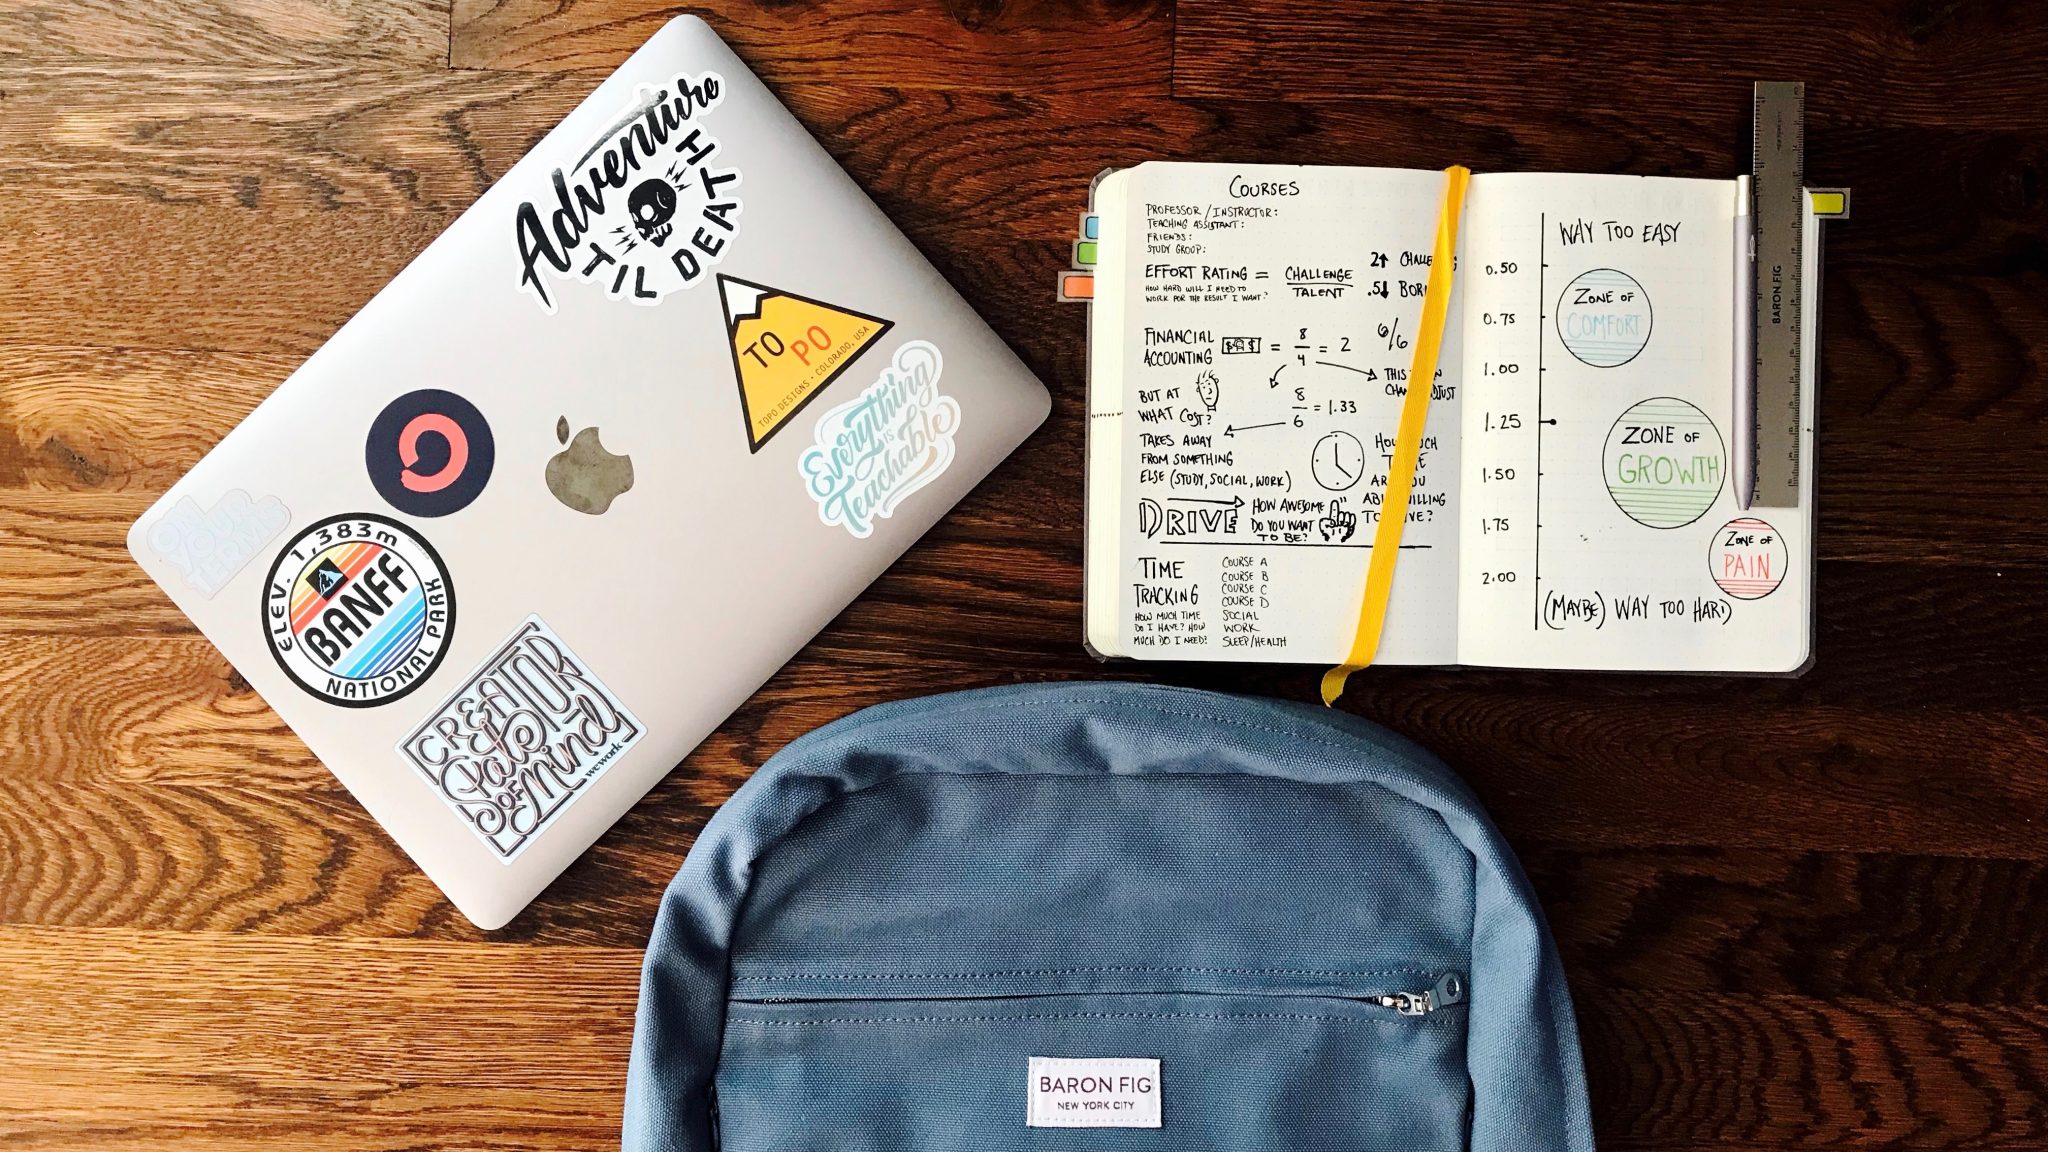 Adventure
TIL DEATH
TO
PO
TOPO DESIGNS • COLORADO, USA
Everything
is
Teachable
ON
YOUR
TERMS
ELEV. 1,383m
BANFF
NATIONAL PARK
CREATOR
State
OF Mind
wework
COURSES
PROFESSOR / INSTRUCTOR:
TEACHING ASSISTANT:
FRIENDS:
STUDY GROUP:
EFFORT RATING = CHALLENGE
TALENT
HOW HARD WILL I NEED TO
WORK FOR THE RESULT I WANT?
2↑
.5↓
FINANCIAL
ACCOUNTING
$ $ = 8/4 = 2
6/6
BUT AT
WHAT COST?
8/6 = 1.33
THIS
TAKES AWAY
FROM SOMETHING
ELSE (STUDY, SOCIAL, WORK)
DRIVE
HOW AWESOME
DO YOU WANT
TO BE?
TIME
TRACKING
HOW MUCH TIME
DO I HAVE? HOW
MUCH DO I NEED?
COURSE A
COURSE B
COURSE C
COURSE D
SOCIAL
WORK
SLEEP/HEALTH
WAY TOO EASY
0.50
0.75
1.00
1.25
1.50
1.75
2.00
ZONE OF
COMFORT
ZONE OF
GROWTH
ZONE OF
PAIN
(MAYBE) WAY TOO HARD
BARON FIG
BARON FIG
NEW YORK CITY